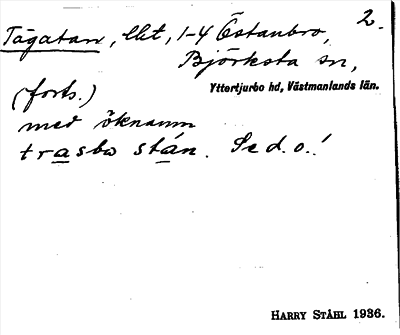 2.
Tägatan, lht, 1-4 Östanbro,
Björksta sn,
Yttertjurbo hd, Västmanlands län.
(forts.)
med öknamn
trasbo stán. Se d. o.!
HARRY STÅHL 1936.